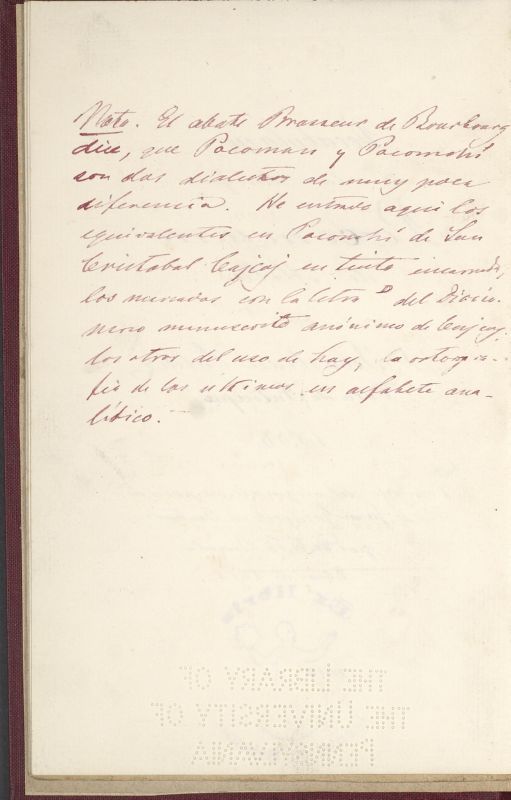 Nota. El abate Brasseur de Bourbourg
dice, que Pocoman y Pocomchí
son dos dialectos de muy poca
diferencia. He entrado aqui los
equivalentes en Pocomchí de San
Cristobal Cajcoj en tinta encarnada,
los marcados con la letra D del Diccio-
nario manuscrito anónimo de Cajcoj,
los otros del uso de hay, la ortogra-
fia de los ultimos en alfabete ana-
lítico. —
THE LIBRARY OF
THE UNIVERSITY OF
PENNSYLVANIA